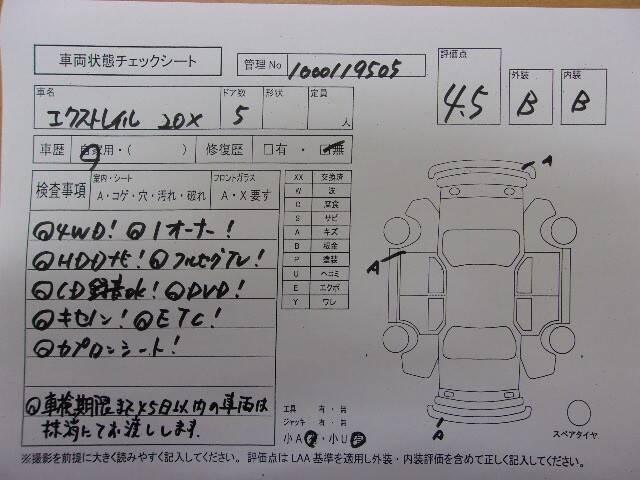 車両状態チェックシート
管理No 1000119505
評価点 4.5
外装 B
内装 B
車名 エクストレイル 20X
ドア数 5
形状
定員 人
車歴 自家用・( )
修復歴 □有・□無
検査事項
室内・シート
A・コゲ・穴・汚れ・破れ
フロントガラス
A・X要す
XX 交換済
W 波
C 腐食
S サビ
A キズ
B 板金
P 塗装
U ヘコミ
E エクボ
Y ワレ
◎4WD! ◎1オーナー!
◎HDDナビ! ◎フルセグTV!
◎CD録音ok! ◎DVD!
◎キセノン! ◎ETC!
◎カプロンシート!
◎車検期限まで45日以内の車両は
抹消にてお渡しします.
A
A
A
工具 有・無
ジャッキ 有・無
小A有・小U有
スペアタイヤ
※撮影を前提に大きく読みやすく記入してください。 評価点はLAA基準を適用し外装・内装評価を含めて正しく記入してください。